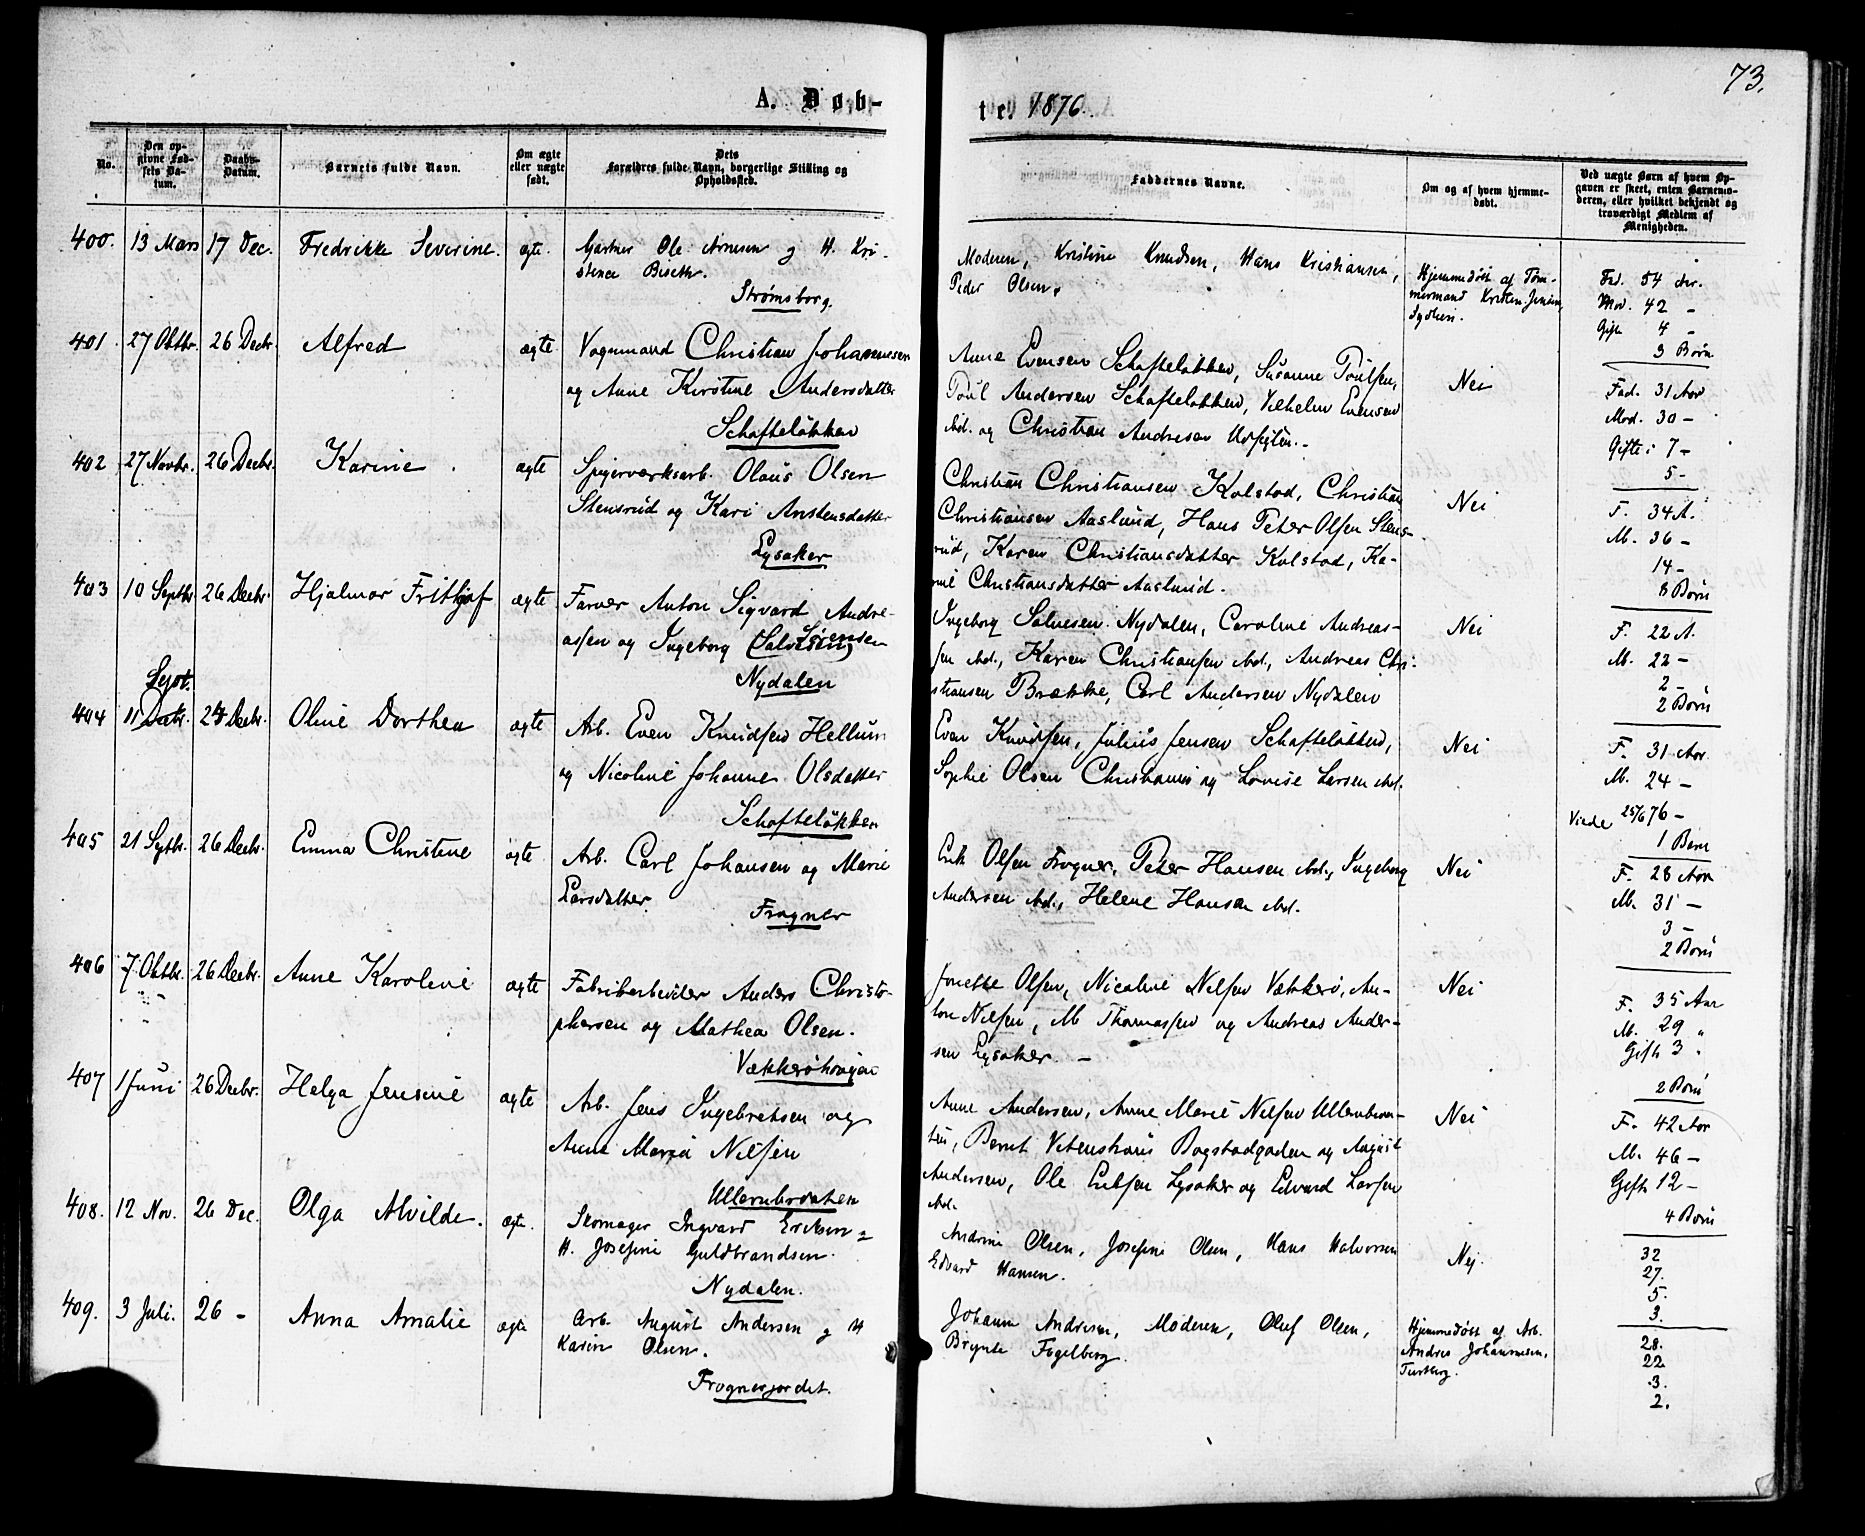 73.
A. Døb-
te. 1876.
No.
Den op-
givne Fød-
sels Da-
tum.
Daabs-
Datum.
Barnets fulde Navn.
Om ægte
eller uægte
født.
Dets
Forældres fulde Navn, borgerlige Stilling og
Opholdssted.
Faddernes Navne.
Om og af hvem hjemme-
døbt.
Ved uægte Børn af hvem Op-
gaven er skeet, enten Barnemo-
deren, eller hvilket bekjendt og
troværdigt Medlem af
Menigheden.
400. 13 Mars 17 Dec. Fredrikke Severine. ægte. Gartner Ole Arnesen og H. Kri-
stence Biseth.
Strømsborg.
Moderen, Kristine Knudsen, Hans Kristiansen,
Peder Olsen.
Hjemmedøbt af Tøm-
mermand Kristen Jensen,
Fad. 54 Ar.
Mod. 42 -
Gift 4 -
3 Børn
401. 27 Oktbr. 26 Decbr. Alfred ægte Vognmand Christian Johannesen
og Anne Kirstine Andersdatter
Schafteløkken
Anne Evensen Schafteløkken, Susanne Poulsen,
Poul Andersen Schafteløkken, Vilhelm Evensen
ibd. og Christian Andresen
Nei
Fad. 31 Aar
Mod. 30 -
Gifte: 7 -
5 -
402 27 Novbr. 26 Decbr. Karine ægte Spigerverksarb. Olaus Olsen
Stensrud og Kari Anstensdatter
Lysaker
Christian Christiansen Kolstad, Christian
Christiansen Aaslund, Hans Peter Olsen Stens-
rud, Karen Christiansdatter Kolstad, Ka-
rine Christiansdatter Aaslund.
Nei
F. 34 A.
M. 36 -
14 -
8 Børn
403 10 Septbr 26 Decbr. Hjalmar Frithjof ægte Farver Anton Sigvard Andre-
assen og Ingeborg (Salvesen) Sørensen
Nydalen
Ingeborg Salvesen Nydalen, Caroline Andreas-
sen ibd., Karen Christiansen ibd., Andreas Chri-
stiansen Brække, Carl Andersen Nydalen
Nei
F. 22 A.
M. 22 -
2 -
2 Børn
Sept.
404 11 Decbr. 26 Decbr. Oline Dorthea ægte Arb. Even Knudsen Hellum
og Nicoline Johanne Olsdatter
Schafteløkken
Even Knudsen, Julius Jensen Schafteløkken,
Sophie Olsen Christiania og Lovise Larsen ibd.
Nei
F. 31 Aar
M. 24 -
Viede 25/6 76 -
1 Barn
405 21 Septbr. 26 Decbr. Emma Christine ægte Arb. Carl Johansen og Marie
Larsdatter
Frogner
Erik Olsen Frogner, Peter Hansen ibd., Ingeborg
Andersen ibd., Helene Hansen ibd.
Nei
F. 28 Aar
M. 31 -
3 -
2 Børn
406 7 Oktbr. 26 Decbr. Anne Karoline ægte Fabrikarbeider Anders Christo-
phersen og Mathea Olsen.
Vækkerøhougen
Jonette Olsen, Nicoline Nilsen Vækkerø, An-
ton Nilsen, M Thomassen og Andreas Ander-
sen Lysaker. -
Nei
F. 35 Aar
M. 29 "
Gift 3 "
2 Børn
407 1 Juni 26 Decbr. Helga Jensine ægte Arb. Jens Ingebretsen og
Anne Maria Nilsen
Ullernbraaten
Anne Andersen, Anne Marie Nilsen Ullernbraa-
ten, Bernt Bogstadgaden og August
Andersen, Ole Eriksen Lysaker og Edvard Larsen
ibd.
Nei
F. 42 Aar
M. 46 -
Gift 12 -
4 Børn
408. 12 Nov. 26 Dec. Olga Alvilde. ægte. Skomager Ingvard Eriksen &
H. Josefine Guldbrandsen.
Nydalen.
Andrine Olsen, Josefine Olsen, Hans Halvorsen
Edvard Hansen.
Nej.
32
27.
5.
3.
409. 3 Juli. 26 - Anna Amalie ægte Arb. August Andersen og H
Karin Olsen.
Frognerjordet.
Johanne Andresen, Moderen, Oluf Olsen,
Brynte Fogelberg.
Hjemmedøbt af Arb.
Andres Johannesen,
28.
22
3.
2.